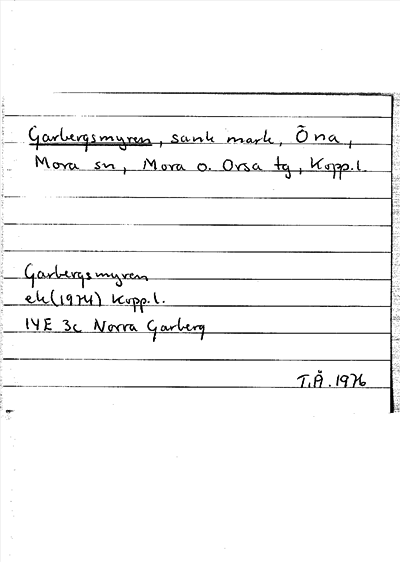 Garbergsmyren, sank mark, Õna,
Mora sn, Mora o. Orsa tg, Kopp.l.
Garbergsmyren
ek(1974) Kopp.l.
14E 3c Norra Garberg
T.Å. 1976